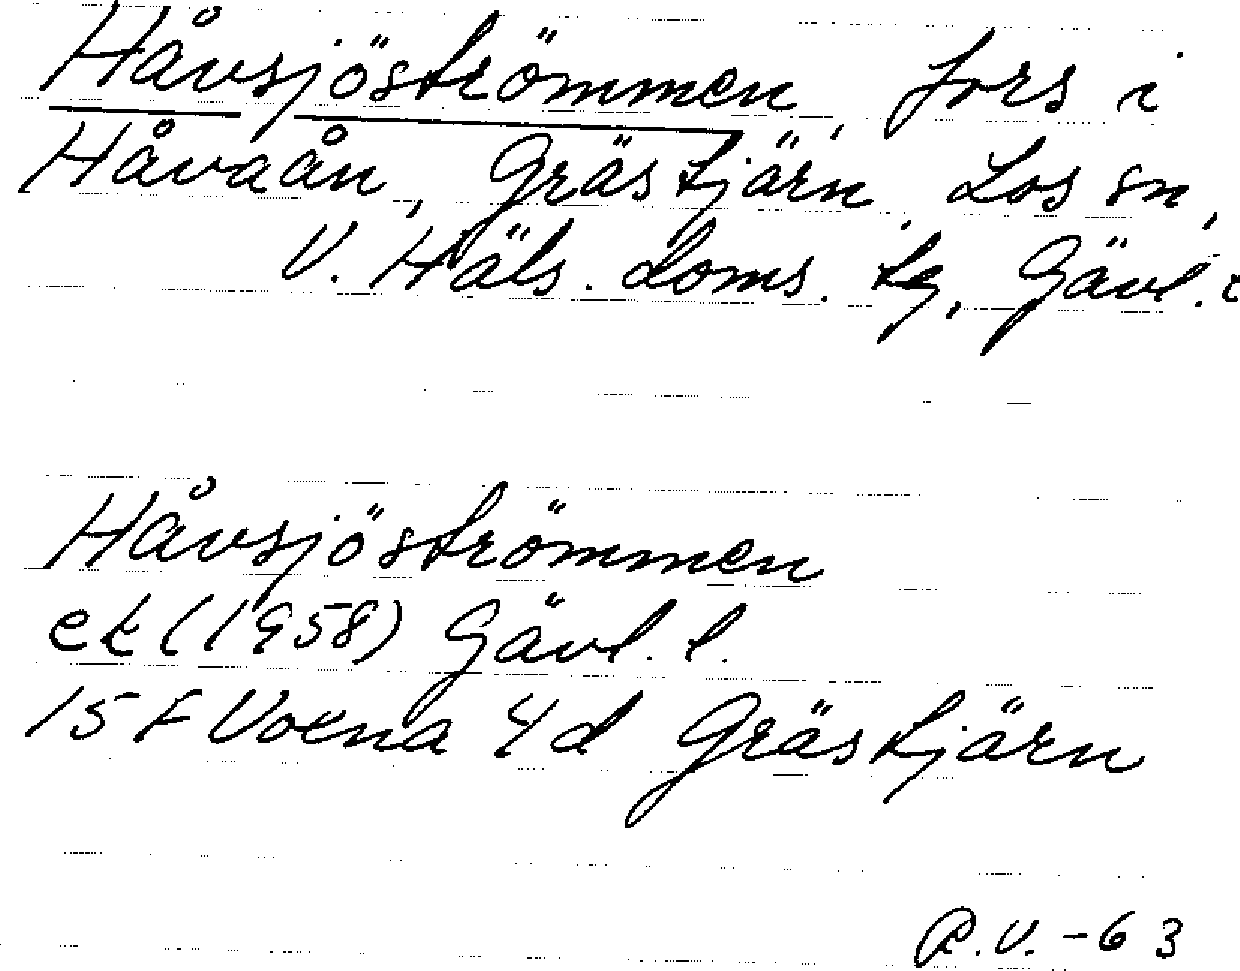 Håvsjöströmmen, fors i
Håvaån, Grästjärn, Los sn,
V. Häls. doms. tg, Gävl. l
Håvsjöströmmen
ek (1958) Gävl. l.
15 F Voxna 4d Grästjärn
R.V. -63